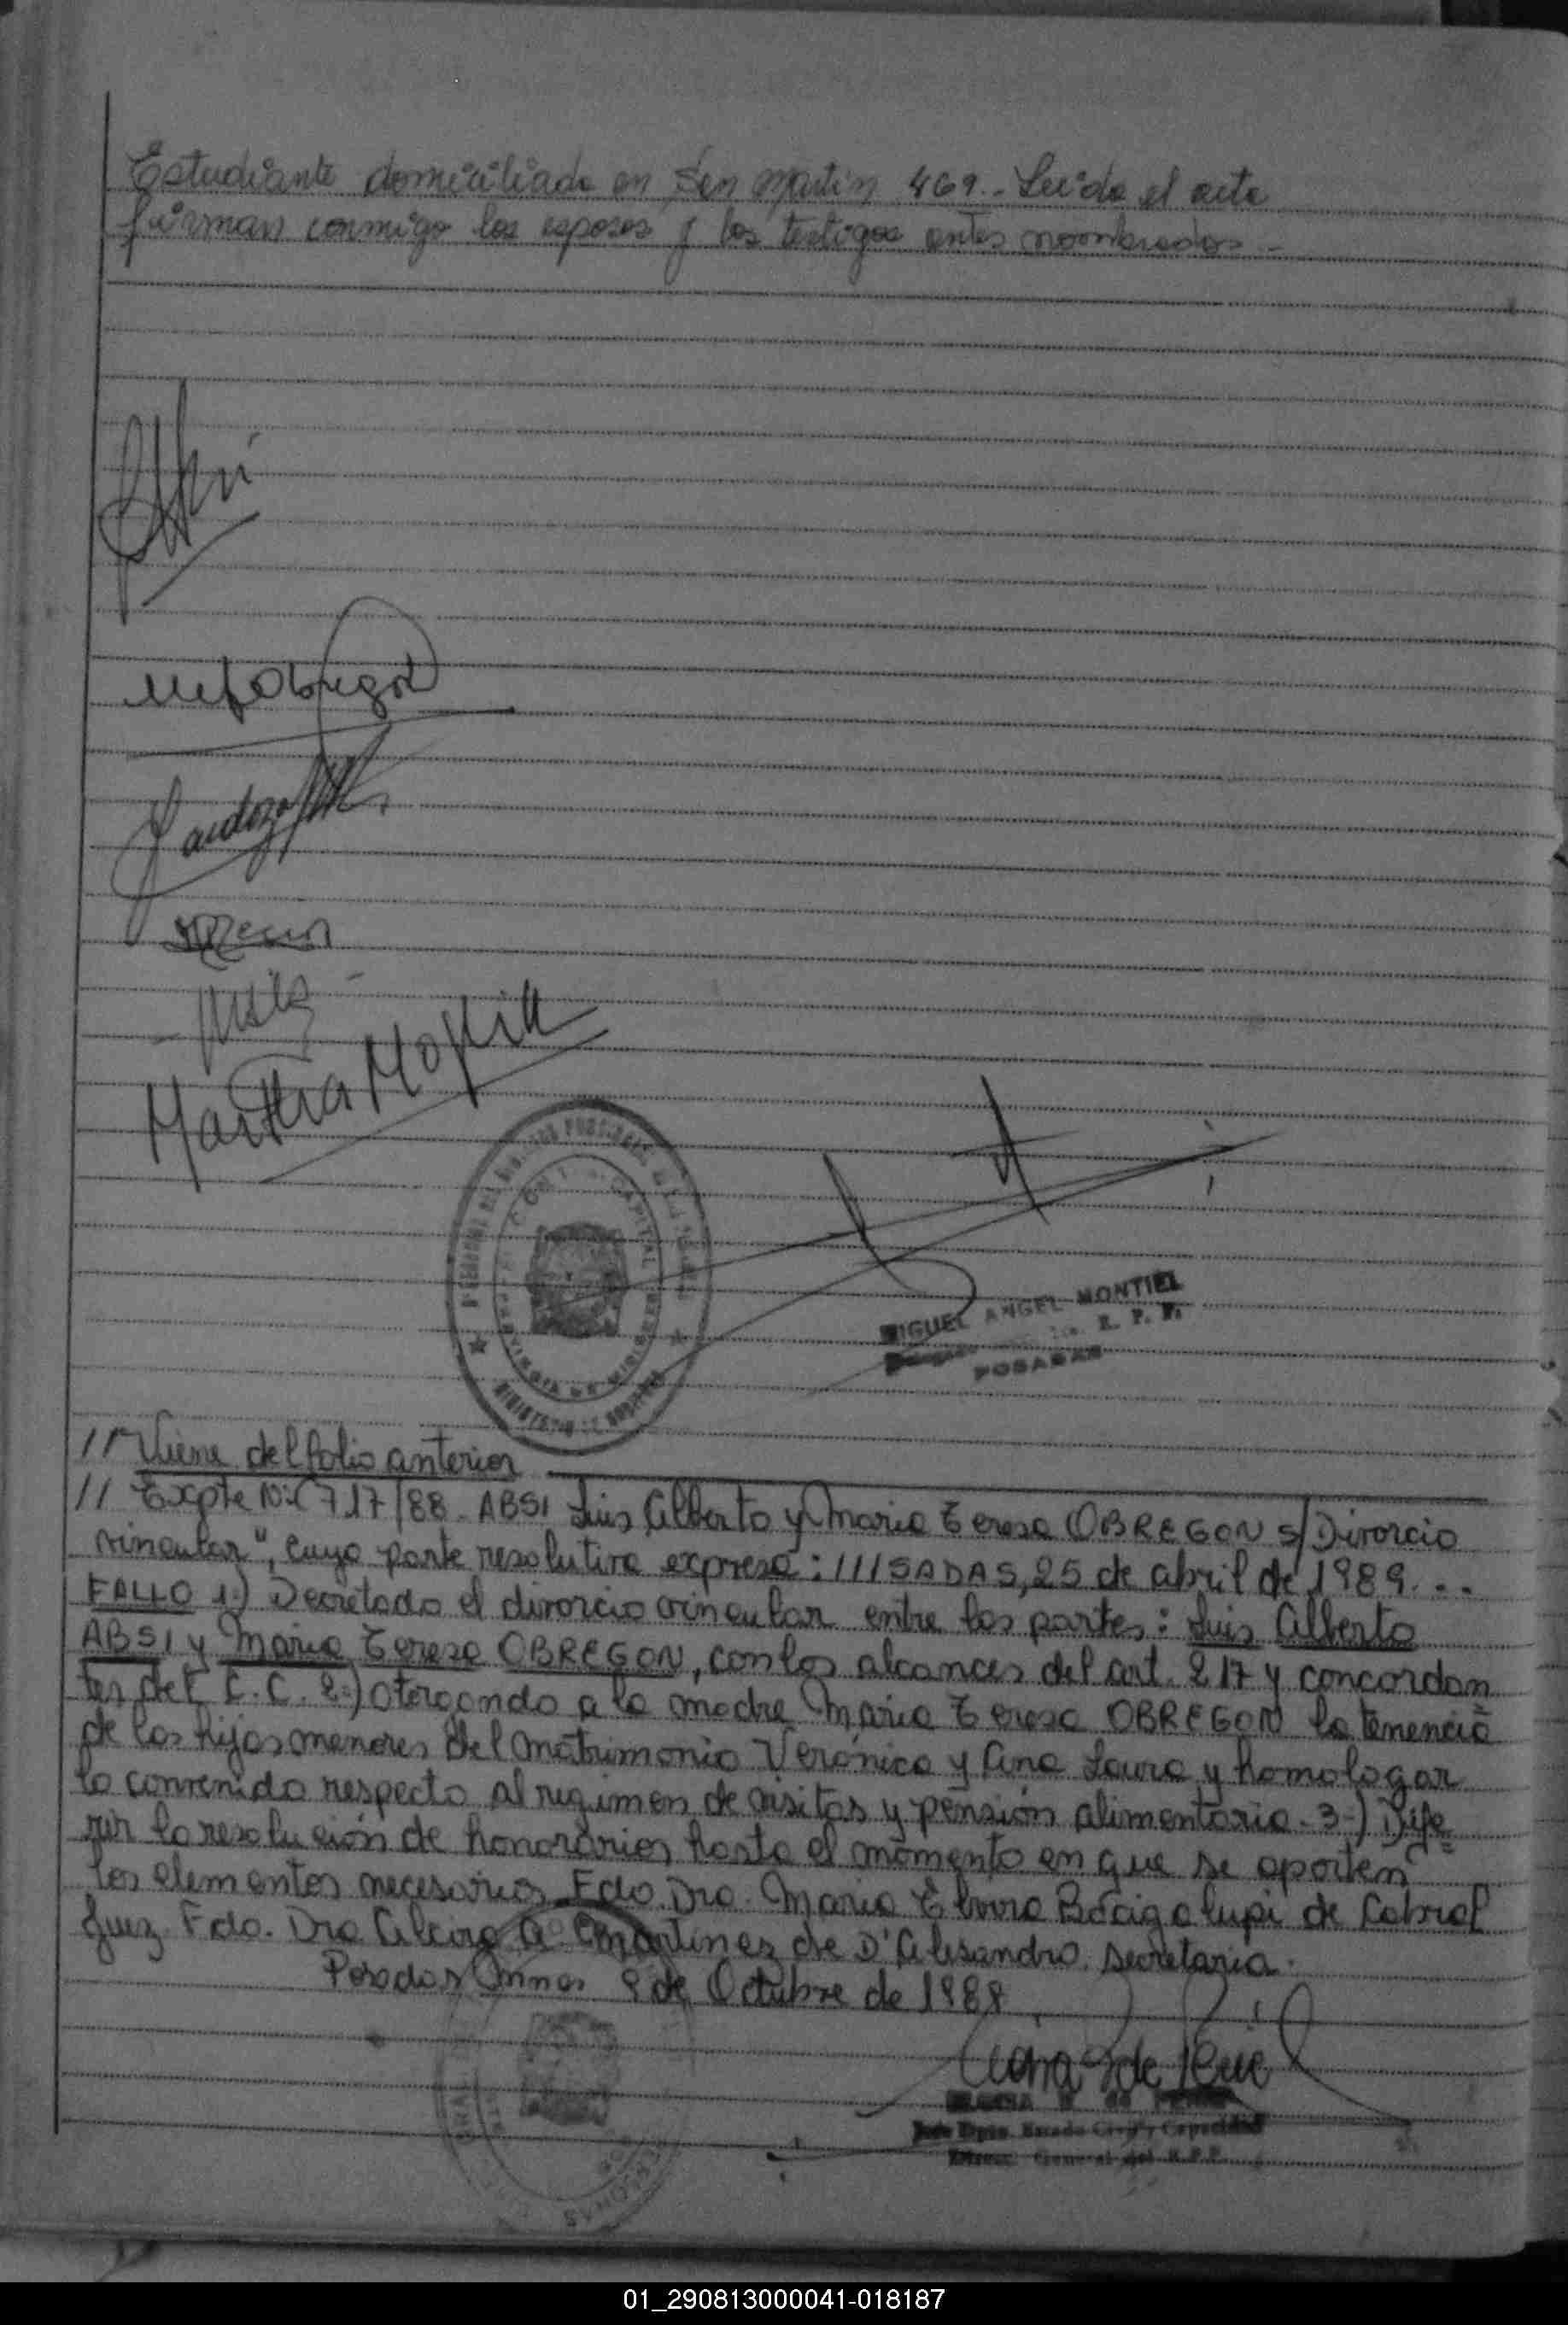 Estudiante domiciliada en San Martin 469.- Leida el acta
firman conmigo los esposos y los testigos antes nombrados.-
Martha
MIGUEL ANGEL MONTIEL
R. P. P.
POSADAS
// Viene del folio anterior
// Expte Nº 717/88. ABSI Luis Alberto y Maria Teresa OBREGON s/Divorcio
vincular", cuya parte resolutiva expresa: ///SADAS, 25 de abril de 1989...
FALLO 1-) Decretado el divorcio vincular entre las partes: Luis Alberto
ABSI y Maria Teresa OBREGON, con los alcances del art. 217 y concordan
tes del C.C. 2-) Otorgando a la madre Maria Teresa OBREGON la tenencia
de los hijos menores del matrimonio Verónica y Ana Laura y homologar
lo convenido respecto al regimen de visitas y pensión alimentaria.- 3-) Dife
rir la resolución de honorarios hasta el momento en que se aporten
los elementos necesarios. Fdo. Dra. Maria Elvira Bacigalupi de Cabral
Juez. Fdo. Dra A. Martinez de D'Alisandro. Secretaria.
Posadas Mnes 9 de Octubre de 1989
Jefe Dpto. Estado Civil y Capacidad
General del R.P.P.
01_290813000041-018187